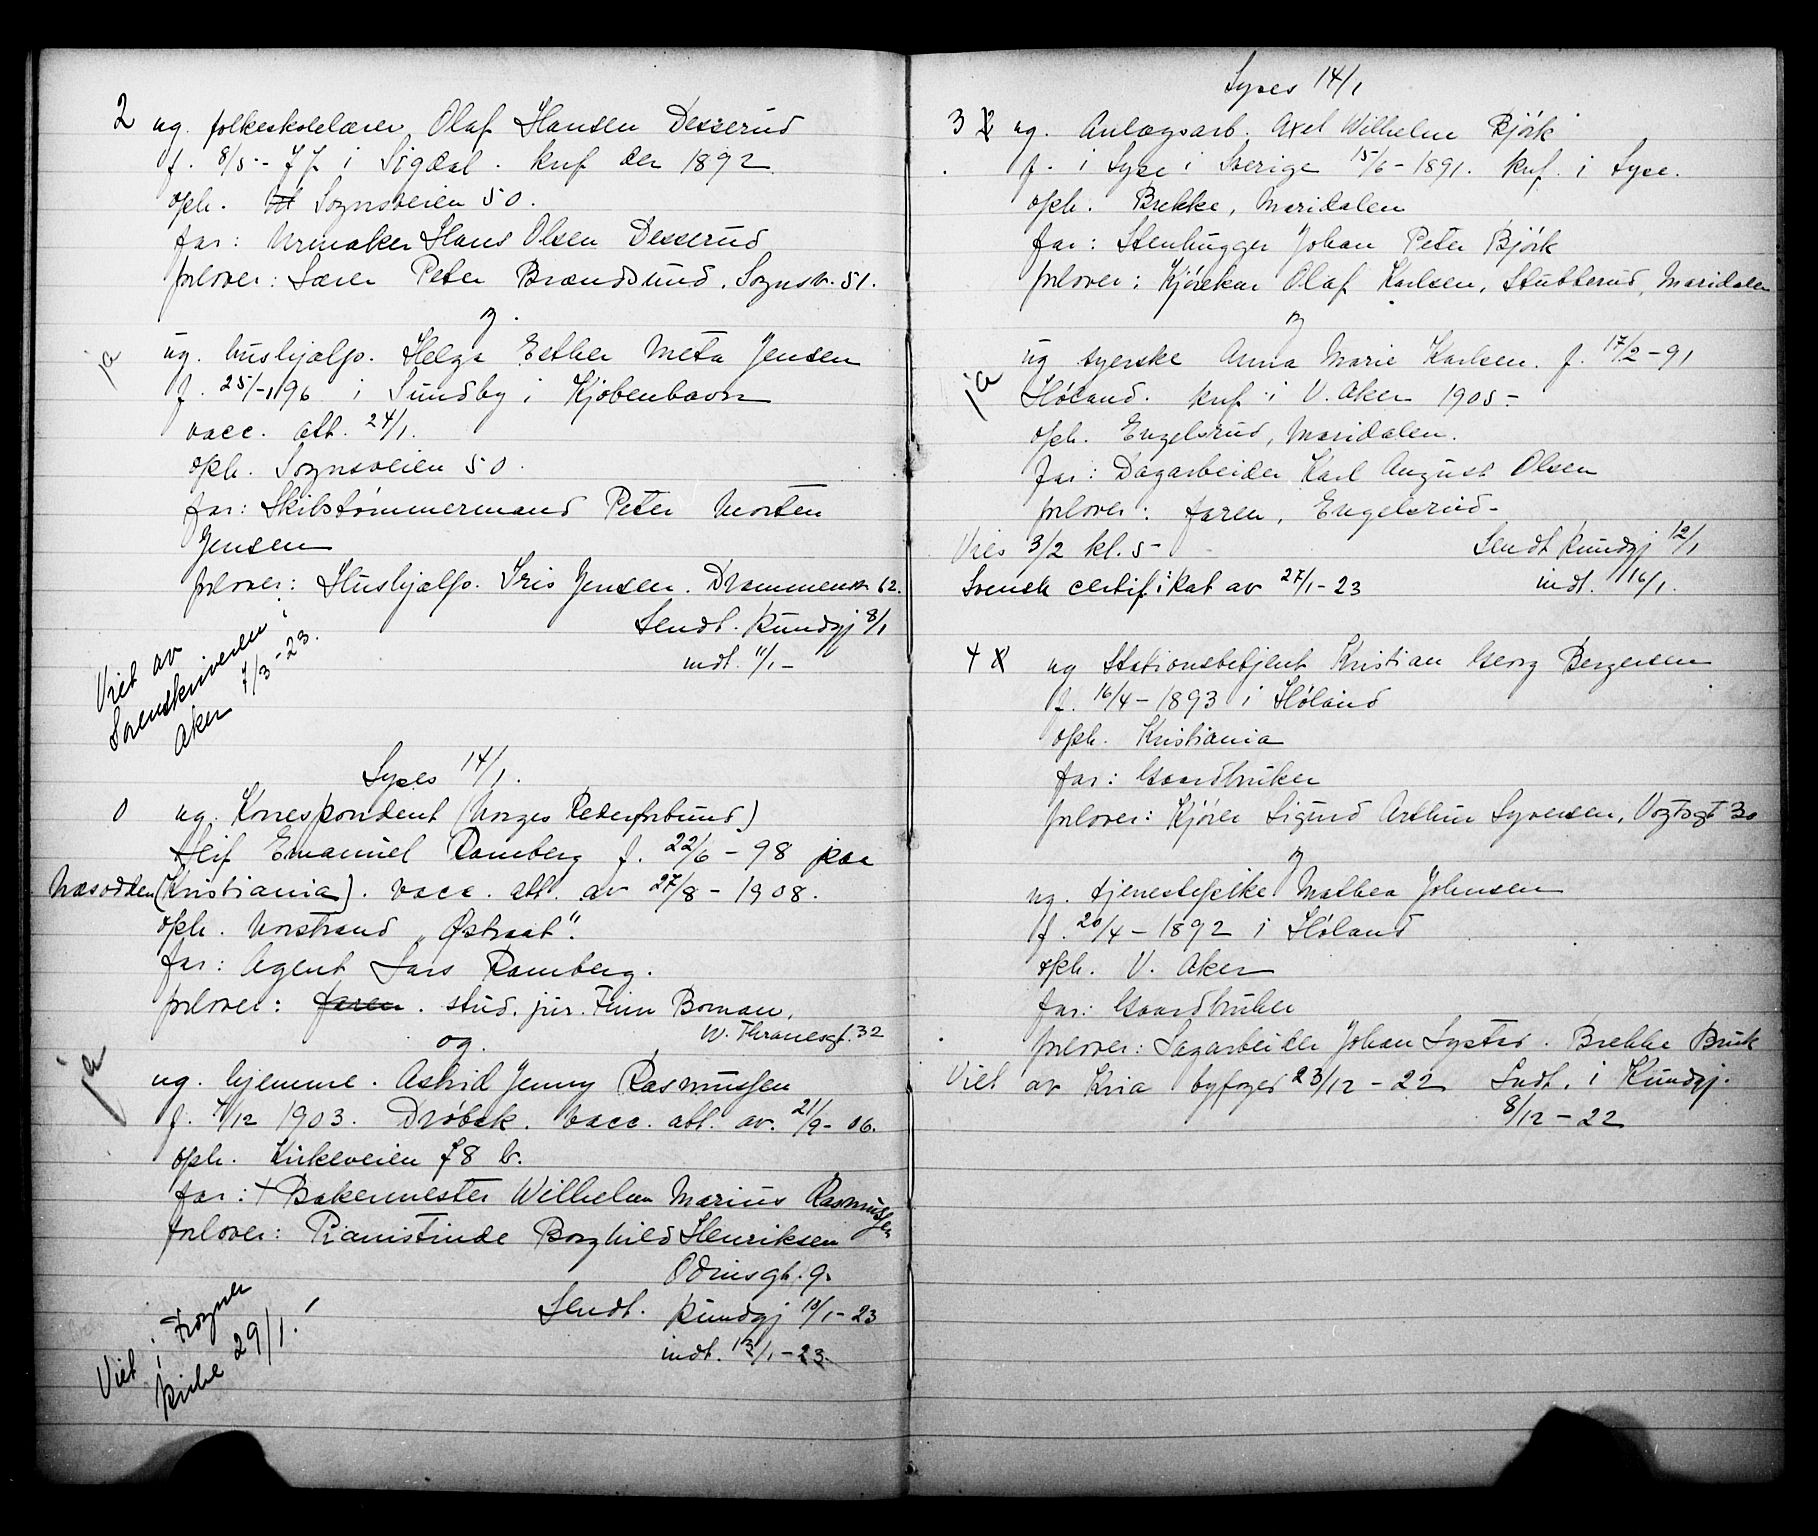 2 ug. folkeskolelærer Olaf Hansen Desserud
f. 8/5 - 77 i Sigdal. knf der 1892
oph. Sognsveien 50.
far: Urmaker Hans Olsen Desserud
forlover: Lærer Peter Brændsund, Sognsv. 51.
og
ja
ug. hushjælp. Helga Esther Meta Jensen
f. 25/1-196 i Sundby i Kjøbenhavn
vacc. att. 24/1.
oph. Sognsveien 50.
far: Skibstømmermand Peter Morten
Jensen
forlover: Hushjælp. Iris Jensen. Drammensv. 62.
Sendt. kundgj 8/1
indt. 11/1-
Viet av
Sorenskriveren i
Aker 7/3-23.
Lyses 14/1.
0 ug. Korrespondent (Norges Rederforbund)
Leif Emanuel Ramberg f. 22/6 - 98 paa
Næsodden (Kristiania). vacc. att. av 27/8 - 1908.
oph. Norstrand "Østraat".
far: Agent Lars Ramberg.
forlover: faren. stud. jur. Finn Boman,
W. Thranesgt. 32
og.
ja
ug. hjemme. Astrid Jenny Rasmussen
f. 7/12 1903. Drøbak. vacc. att. av. 21/9-06.
oph. Kirkeveien 78 b.
far: † Bakermester Wilhelm Marius Rasmussen
forlover: Pianistinde Borghild Henriksen
Odinsgt. 9.
Sendt. kundgj 10/1-23
indt. 13/1-23.
Viet i Frogner
kirke 29/1.
Lyses 14/1
3 ug. Anlægsarb. Axel Wilhelm Björk
f. i Lyse i Sverige 15/6-1891. knf. i Lyse.
oph. Brekke, Maridalen
far: Stenhugger Johan Peter Björk
forlover: Kjørekar Olaf Karlsen, Stubberud, Maridalen
og
ja
ug syerske Anna Marie Karlsen. f. 17/2-91
Høland. knf i V. Aker 1905-
oph. Engelsrud, Maridalen.
far: Dagarbeider Karl August Olsen
forlover: faren, Engelsrud-
Vies 3/2 kl. 5- Sendt kundgj 12/1
Svensk certifikat av 27/1-23 indt. 16/1.
4 ug Stationsbetjent Kristian Georg Bergersen
f. 16/4-1893 i Høland
oph. Kristiania
far: Gaardbruker
forlover: Kjører Sigurd Arthur Syversen, Vogtsgt 30
og
ug. tjenestepike Mathea Johnsen
f. 20/4-1892 i Høland
oph. V. Aker
far: Gaardbruker
forlover: Sagarbeider Johan Lysted. Brekke Bruk
Viet av Kria byfoged 23/12-22 Indt. i Kundgj.
8/12-22